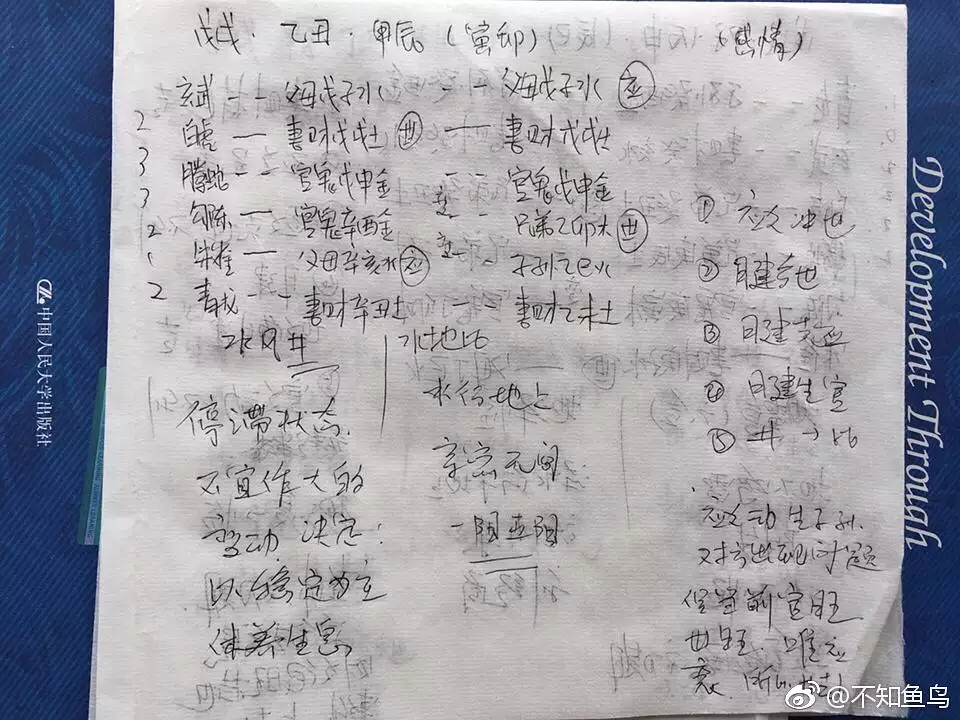 戊戌·乙丑·甲辰(寅卯) (感情)
玄武 -- 父母戊子水 -- 父母戊子水 应
2 白虎 — 妻财戊戌土 世 — 妻财戊戌土
3 腾蛇 -- 官鬼戊申金 -- 官鬼戊申金
3 勾陈 — 官鬼辛酉金 -- 兄弟乙卯木 世
2 朱雀 — 父母辛亥水 应 -- 子孙乙巳火
2 青龙 -- 妻财辛丑土 妻财乙未土
水风井
水地比
停滞状态
不宜作大的
变动 决定:
以稳定为主
休养生息
水行地上
亲密无间
① 应爻冲世
② 日建合世
③ 日建克应
④ 日建生官
⑤ 井→比
应爻动生子孙.
对方出现问题
官旺
世旺.唯应
衰.
中国人民大学出版社
Development Through
@不知鱼鸟